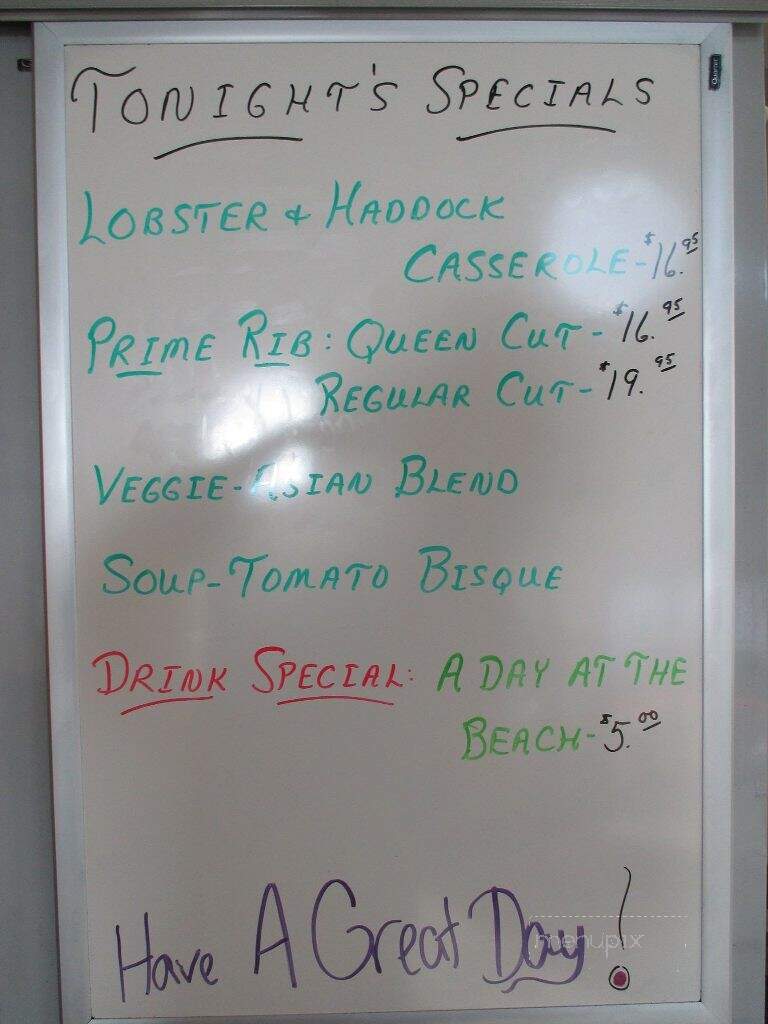 TONIGHT'S SPECIALS
LOBSTER & HADDOCK
CASSEROLE-$16.95
PRIME RIB: QUEEN CUT-$16.95
REGULAR CUT-$19.95
VEGGIE-ASIAN BLEND
SOUP-TOMATO BISQUE
DRINK SPECIAL: A DAY AT THE
BEACH-$5.00
Have A Great Day!
menupix
Quartet